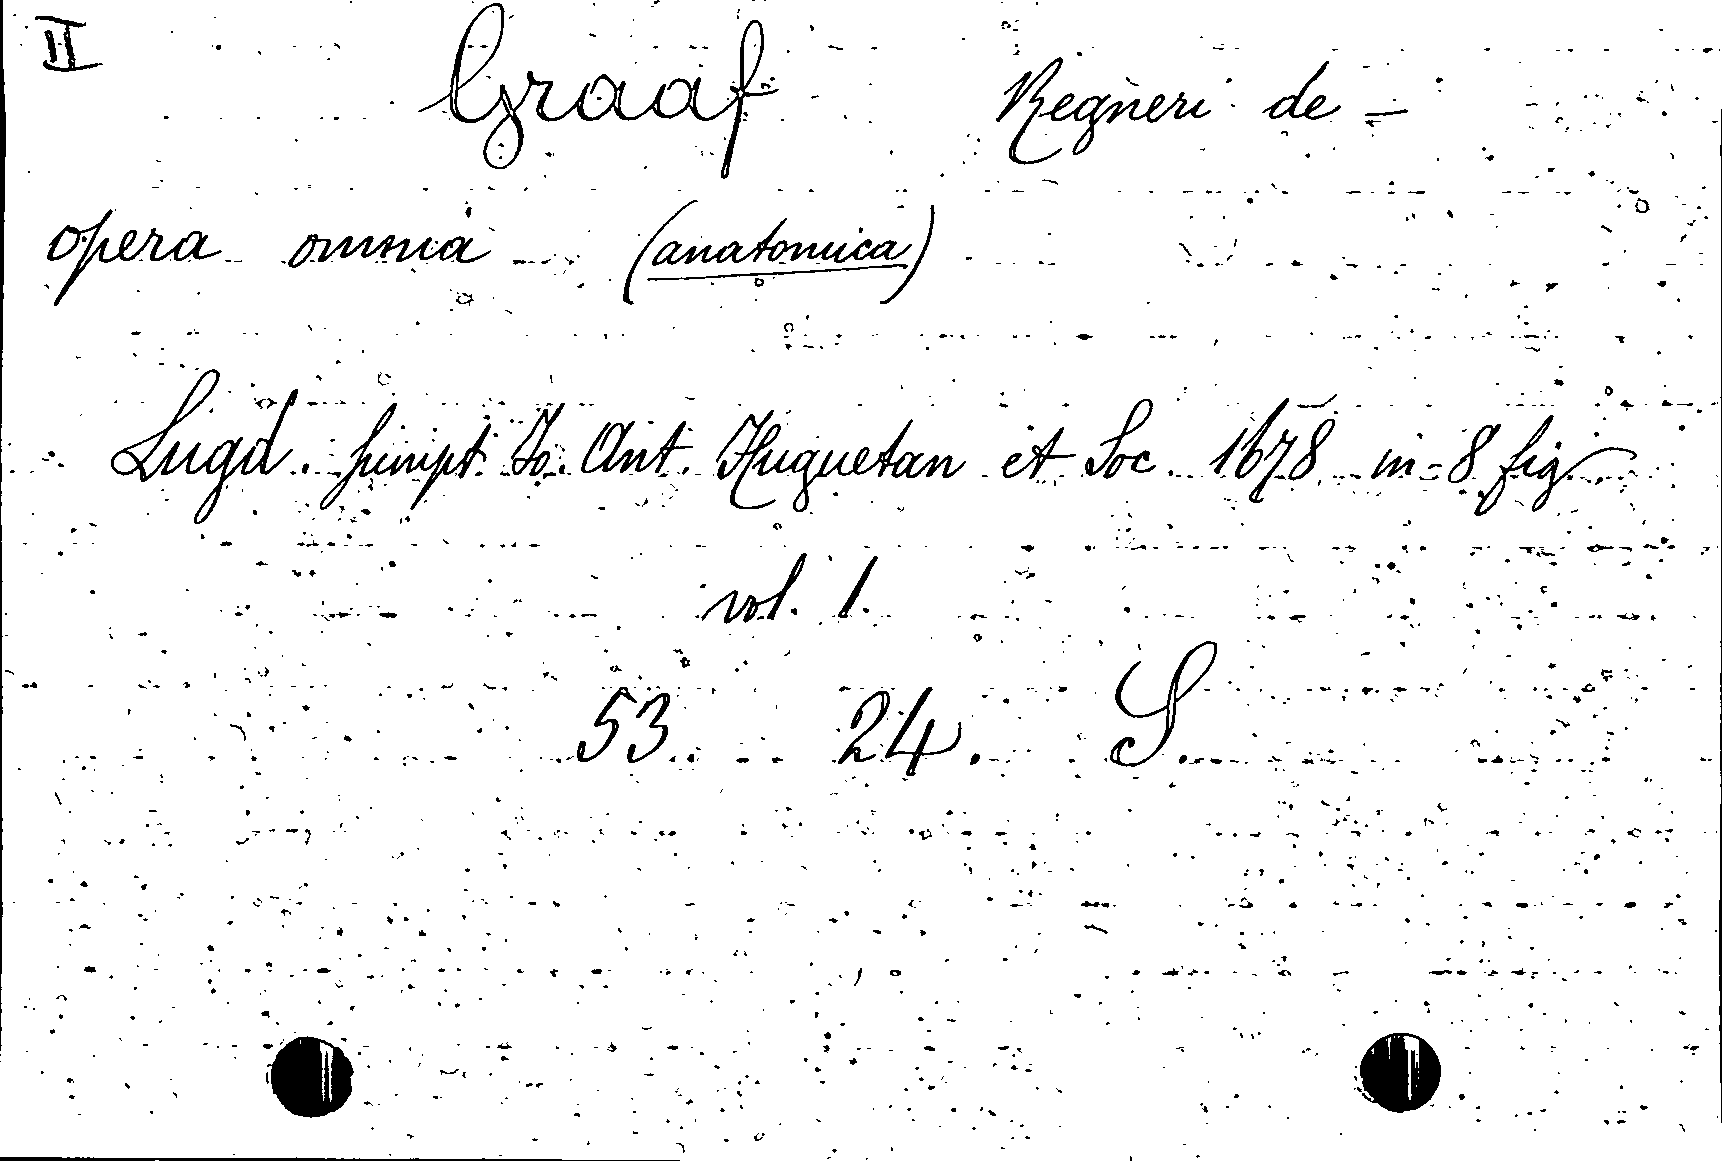 II Graaf Regneri de -
opera omnia (anatomica)
Lugd. sumpt. Jo. Ant. Huguetan et Soc. 1678 in-8 fig
vol. 1.
53. 24. S.